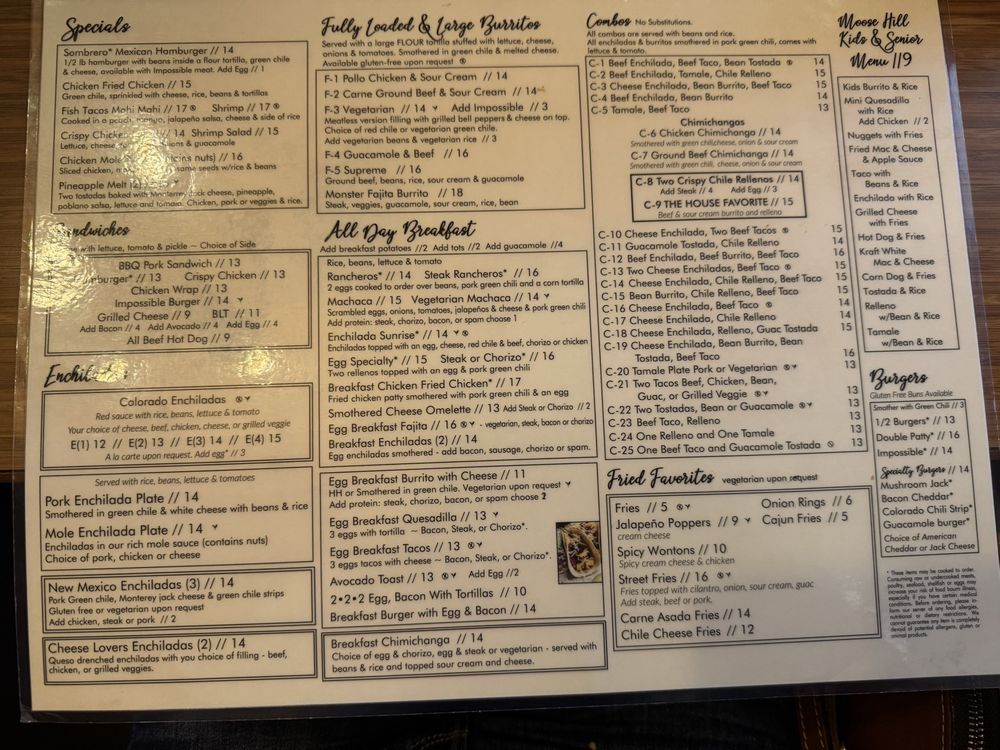 Specials
Sombrero* Mexican Hamburger // 14
1/2 lb hamburger with beans inside a flour tortilla, green chile
& cheese, available with Impossible meat. Add Egg // 1
Chicken Fried Chicken // 15
Green chile, sprinkled with cheese, rice, beans & tortillas
Fish Tacos Mahi Mahi // 17 Shrimp // 17
Cooked in a peach, mango, jalapeño salsa, cheese & side of rice
Crispy Chicken // 14 Shrimp Salad // 15
Lettuce, cheese, & guacamole
Chicken Mole (contains nuts) // 16
Sliced chicken, sesame seeds w/rice & beans
Pineapple Melt
Two tostadas baked with Monterey jack cheese, pineapple,
poblano salsa, lettuce and tomato. Chicken, pork or veggies & rice.
Sandwiches
with lettuce, tomato & pickle ~ Choice of Side
BBQ Pork Sandwich // 13
burger* // 13 Crispy Chicken // 13
Chicken Wrap // 13
Impossible Burger // 14
Grilled Cheese // 9 BLT // 11
Add Bacon // 4 Add Avocado // 4 Add Egg // 4
All Beef Hot Dog // 9
Enchiladas
Colorado Enchiladas
Red sauce with rice, beans, lettuce & tomato
Your choice of cheese, beef, chicken, cheese, or grilled veggie
E(1) 12 // E(2) 13 // E(3) 14 // E(4) 15
A la carte upon request. Add egg* // 3
Served with rice, beans, lettuce & tomatoes
Pork Enchilada Plate // 14
Smothered in green chile & white cheese with beans & rice
Mole Enchilada Plate // 14
Enchiladas in our rich mole sauce (contains nuts)
Choice of pork, chicken or cheese
New Mexico Enchiladas (3) // 14
Pork Green chile, Monterey jack cheese & green chile strips
Gluten free or vegetarian upon request
Add chicken, steak or pork // 2
Cheese Lovers Enchiladas (2) // 14
Queso drenched enchiladas with you choice of filling - beef,
chicken, or grilled veggies.
Fully Loaded & Large Burritos
Served with a large FLOUR tortilla stuffed with lettuce, cheese,
onions & tomatoes. Smothered in green chile & melted cheese.
Available gluten-free upon request
F-1 Pollo Chicken & Sour Cream // 14
F-2 Carne Ground Beef & Sour Cream // 14
F-3 Vegetarian // 14 Add Impossible // 3
Meatless version filling with grilled bell peppers & cheese on top.
Choice of red chile or vegetarian green chile.
Add vegetarian beans & vegetarian rice // 3
F-4 Guacamole & Beef // 16
F-5 Supreme // 16
Ground beef, beans, rice, sour cream & guacamole
Monster Fajita Burrito // 18
Steak, veggies, guacamole, sour cream, rice, bean
All Day Breakfast
Add breakfast potatoes //2 Add tots //2 Add guacamole //4
Rice, beans, lettuce & tomato
Rancheros* // 14 Steak Rancheros* // 16
2 eggs cooked to order over beans, pork green chili and a corn tortilla
Machaca // 15 Vegetarian Machaca // 14
Scrambled eggs, onions, tomatoes, jalapeños & cheese & pork green chili
Add protein: steak, chorizo, bacon, or spam choose 1
Enchilada Sunrise* // 14
Enchiladas topped with an egg, cheese, red chile & beef, chorizo or chicken
Egg Specialty* // 15 Steak or Chorizo* // 16
Two rellenos topped with an egg & pork green chili
Breakfast Chicken Fried Chicken* // 17
Fried chicken patty smothered with pork green chili & an egg
Smothered Cheese Omelette // 13 Add Steak or Chorizo // 2
Egg Breakfast Fajita // 16 - vegetarian, steak, bacon or chorizo
Breakfast Enchiladas (2) // 14
Egg enchiladas smothered - add bacon, sausage, chorizo or spam.
Egg Breakfast Burrito with Cheese // 11
HH or Smothered in green chile. Vegetarian upon request
Add protein: steak, chorizo, bacon, or spam choose 2
Egg Breakfast Quesadilla // 13
3 eggs with tortilla ~ Bacon, Steak, or Chorizo*.
Egg Breakfast Tacos // 13
3 eggs tacos with cheese ~ Bacon, Steak, or Chorizo*.
Avocado Toast // 13 Add Egg //2
2•2•2 Egg, Bacon With Tortillas // 10
Breakfast Burger with Egg & Bacon // 14
Breakfast Chimichanga // 14
Choice of egg & chorizo, egg & steak or vegetarian - served with
beans & rice and topped sour cream and cheese.
Combos No Substitutions.
All combos are served with beans and rice.
All enchiladas & burritos smothered in pork green chili, comes with
lettuce & tomato.
C-1 Beef Enchilada, Beef Taco, Bean Tostada 14
C-2 Beef Enchilada, Tamale, Chile Relleno 15
C-3 Cheese Enchilada, Bean Burrito, Beef Taco 15
C-4 Beef Enchilada, Bean Burrito 14
C-5 Tamale, Beef Taco 13
Chimichangas
C-6 Chicken Chimichanga // 14
Smothered with green chili,cheese, onion & sour cream
C-7 Ground Beef Chimichanga // 14
Smothered with green chili, cheese, onion & sour cream
C-8 Two Crispy Chile Rellenos // 14
Add Steak // 4 Add Egg // 3
C-9 THE HOUSE FAVORITE // 15
Beef & sour cream burrito and relleno
C-10 Cheese Enchilada, Two Beef Tacos 15
C-11 Guacamole Tostada, Chile Relleno 14
C-12 Beef Enchilada, Beef Burrito, Beef Taco 16
C-13 Two Cheese Enchiladas, Beef Taco 15
C-14 Cheese Enchilada, Chile Relleno, Beef Taco 15
C-15 Bean Burrito, Chile Relleno, Beef Taco 15
C-16 Cheese Enchilada, Beef Taco 14
C-17 Cheese Enchilada, Chile Relleno 14
C-18 Cheese Enchilada, Relleno, Guac Tostada 15
C-19 Cheese Enchilada, Bean Burrito, Bean
Tostada, Beef Taco 16
C-20 Tamale Plate Pork or Vegetarian 13
C-21 Two Tacos Beef, Chicken, Bean,
Guac, or Grilled Veggie 13
C-22 Two Tostadas, Bean or Guacamole 13
C-23 Beef Taco, Relleno 13
C-24 One Relleno and One Tamale 13
C-25 One Beef Taco and Guacamole Tostada 13
Fried Favorites vegetarian upon request
Fries // 5 Onion Rings // 6
Jalapeño Poppers // 9 Cajun Fries // 5
cream cheese
Spicy Wontons // 10
Spicy cream cheese & chicken
Street Fries // 16
Fries topped with cilantro, onion, sour cream, guac
Add steak, beef or pork.
Carne Asada Fries // 14
Chile Cheese Fries // 12
Moose Hill
Kids & Senior
Menu //9
Kids Burrito & Rice
Mini Quesadilla
with Rice
Add Chicken // 2
Nuggets with Fries
Fried Mac & Cheese
& Apple Sauce
Taco with
Beans & Rice
Enchilada with Rice
Grilled Cheese
with Fries
Hot Dog & Fries
Kraft White
Mac & Cheese
Corn Dog & Fries
Tostada & Rice
Relleno
w/Bean & Rice
Tamale
w/Bean & Rice
Burgers
Gluten Free Buns Available
Smother with Green Chili // 3
1/2 Burgers* // 13
Double Patty* // 16
Impossible* // 14
Specialty Burgers // 14
Mushroom Jack*
Bacon Cheddar*
Colorado Chili Strip*
Guacamole burger*
Choice of American
Cheddar or Jack Cheese
* These items may be cooked to order.
Consuming raw or undercooked meats,
poultry, seafood, shellfish or eggs may
increase your risk of food bourn illness,
especially if you have certain medical
conditions. Before ordering, please in-
form our server of any food allergies,
nutritional or dietary restrictions. We
cannot guarantee any item is completely
devoid of potential allergens, gluten or
animal products.